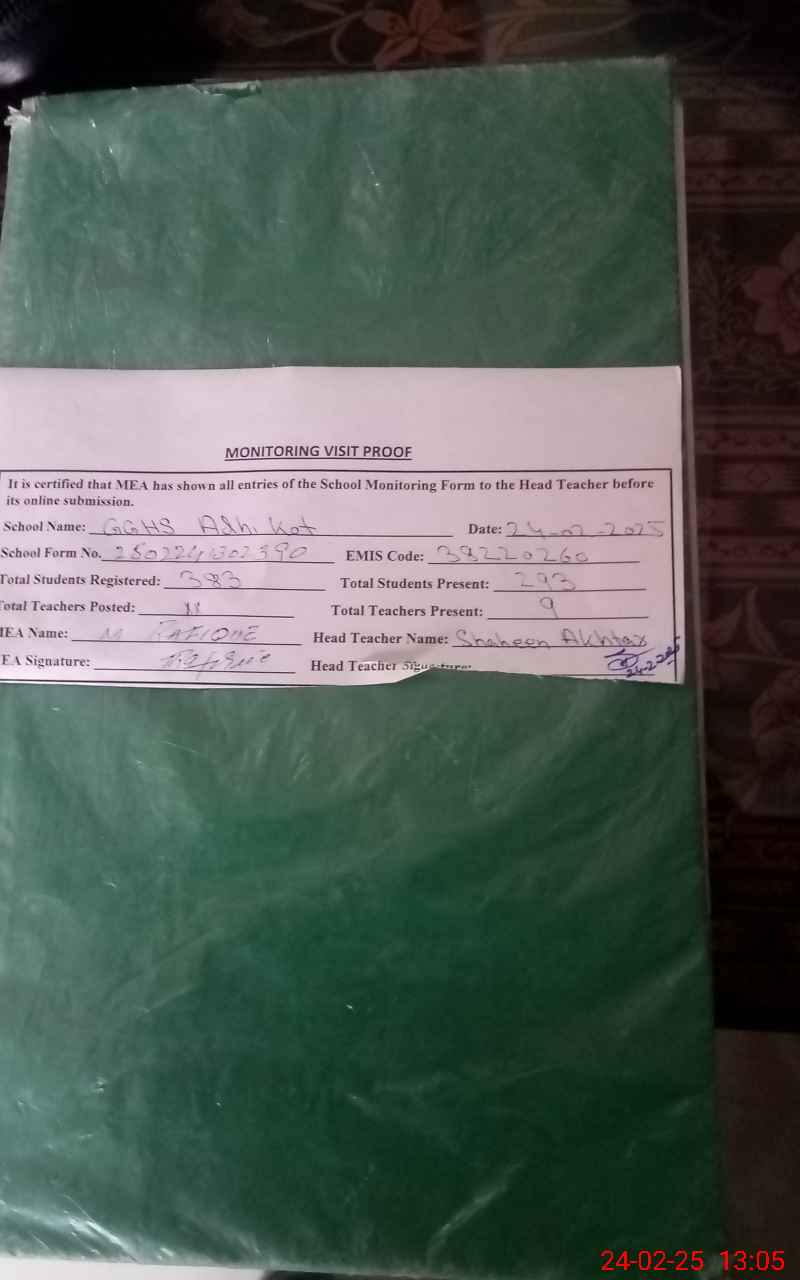 MONITORING VISIT PROOF
It is certified that MEA has shown all entries of the School Monitoring Form to the Head Teacher before
its online submission.
School Name: GGHS Adhi Kot Date: 24-02-2025
School Form No. EMIS Code: 38220260
Total Students Registered: 383 Total Students Present: 293
Total Teachers Posted: 11 Total Teachers Present: 9
MEA Name: M RAFIQUE Head Teacher Name: Shaheen Akhtar
EA Signature: Rafique Head Teacher Signature:
24-2-2025
24-02-25 13:05